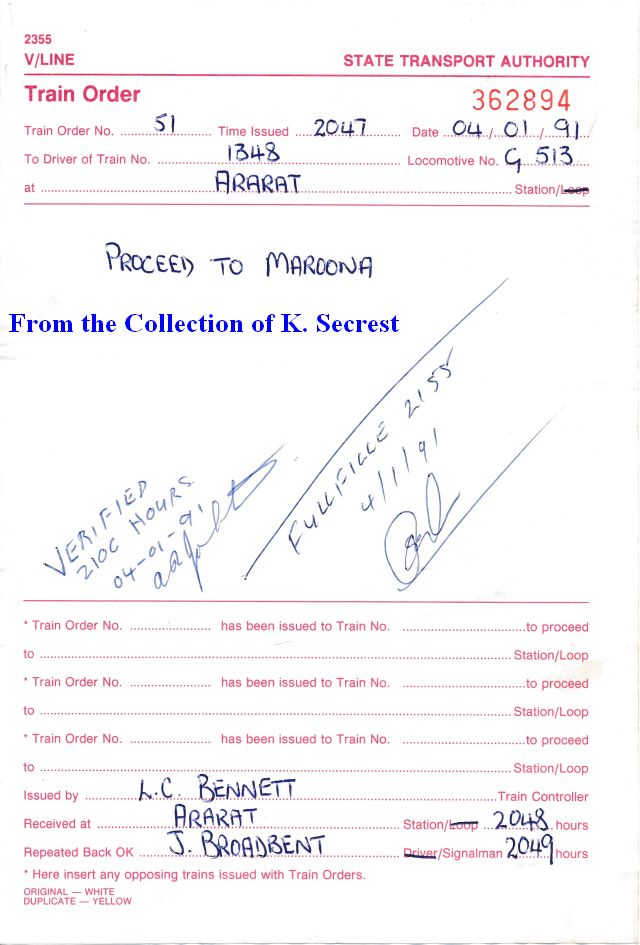 2355
V/LINE STATE TRANSPORT AUTHORITY
Train Order 362894
Train Order No. 51 Time Issued 2047 Date 04/01/91
To Driver of Train No. 1348 Locomotive No. G 513
at ARARAT Station/Loop
PROCEED TO MAROONA
From the Collection of K. Secrest
FULLFILLE 2155
4/1/91
VERIFIED
2100 HOURS
04-01-91
* Train Order No. has been issued to Train No. to proceed
to Station/Loop
* Train Order No. has been issued to Train No. to proceed
to Station/Loop
* Train Order No. has been issued to Train No. to proceed
to Station/Loop
Issued by L.C. BENNETT Train Controller
Received at ARARAT Station/Loop 2048 hours
Repeated Back OK J. BROADBENT Driver/Signalman 2049 hours
* Here insert any opposing trains issued with Train Orders.
ORIGINAL — WHITE
DUPLICATE — YELLOW